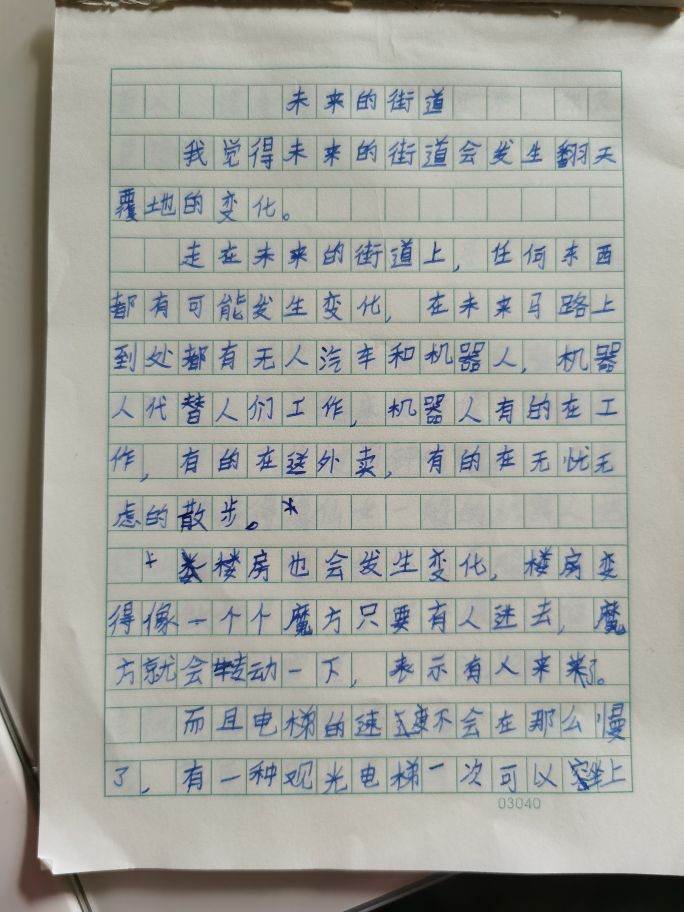 未来的街道
我觉得未来的街道会发生翻天
覆地的变化。
走在未来的街道上，任何东西
都有可能发生变化，在未来马路上
到处都有无人汽车和机器人，机器
人代替人们工作，机器人有的在工
作，有的在送外卖，有的在无忧无
虑的散步。
楼房也会发生变化，楼房变
得像一个个魔方只要有人进去，魔
方就会转动一下，表示有人来了。
而且电梯的速度不会在那么慢
了，有一种观光电梯一次可以坐上
03040